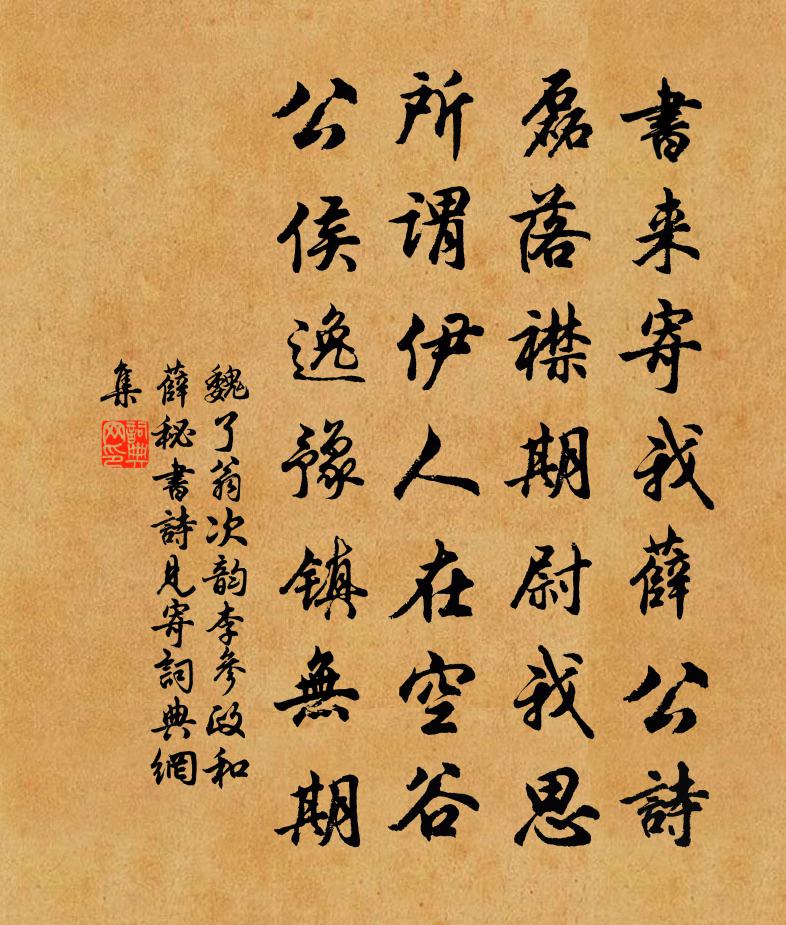 書来寄我薛公詩
磊落襟期尉我思
所謂伊人在空谷
公侯逸豫鎮無期
魏了翁次韵李參政和
薛秘書詩見寄詞典網
集
詞典
网印